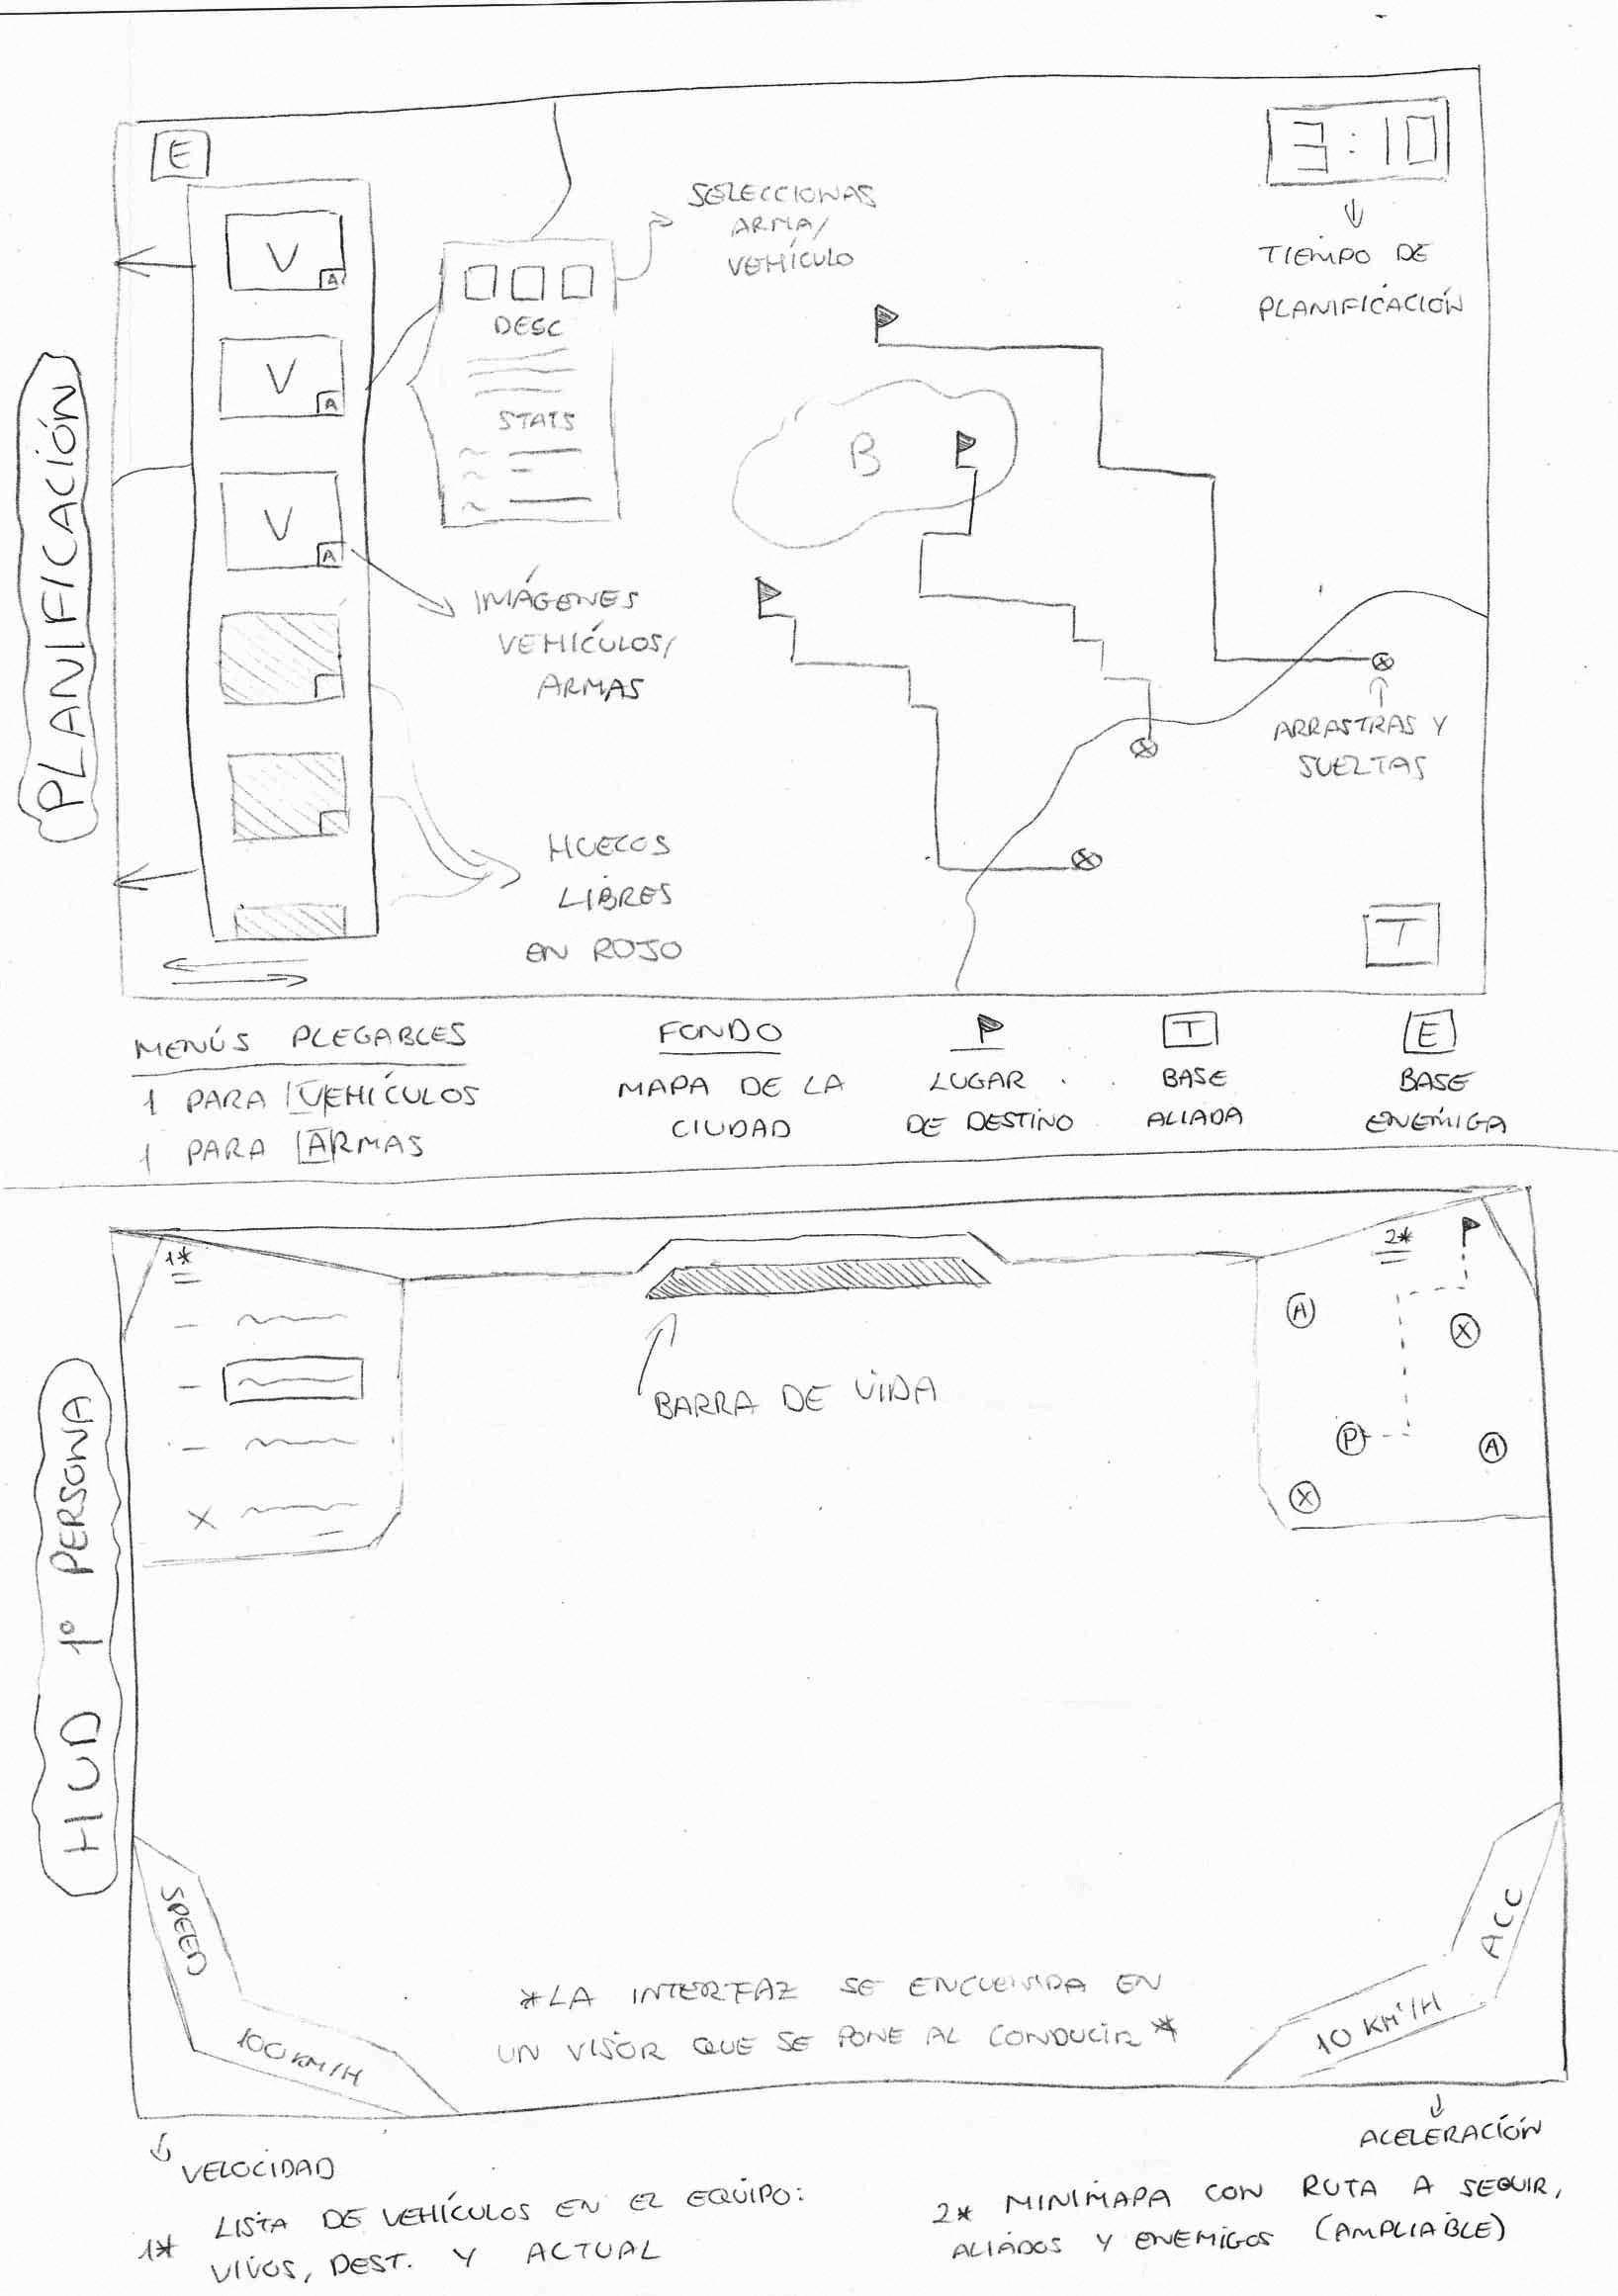 PLANIFICACIÓN
E
3:10
TIEMPO DE
PLANIFICACIÓN
V
A
V
A
V
A
SELECCIONAS
ARMA/
VEHÍCULO
DESC
STATS
B
IMÁGENES
VEHÍCULOS/
ARMAS
ARRASTRAS Y
SUELTAS
HUECOS
LIBRES
EN ROJO
T
MENÚS PLEGABLES
1 PARA VEHÍCULOS
1 PARA ARMAS
FONDO
MAPA DE LA
CIUDAD
LUGAR
DE DESTINO
T
BASE
ALIADA
E
BASE
ENEMIGA
HUD 1º PERSONA
1*
2*
A
X
P
A
X
X
BARRA DE VIDA
SPEED
100 KM/H
ACC
10 KM/H
*LA INTERFAZ SE ENCUENTRA EN
UN VISOR QUE SE PONE AL CONDUCIR*
VELOCIDAD
ACELERACIÓN
1* LISTA DE VEHÍCULOS EN EL EQUIPO:
VIVOS, DEST. Y ACTUAL
2* MINIMAPA CON RUTA A SEGUIR,
ALIADOS Y ENEMIGOS (AMPLIABLE)